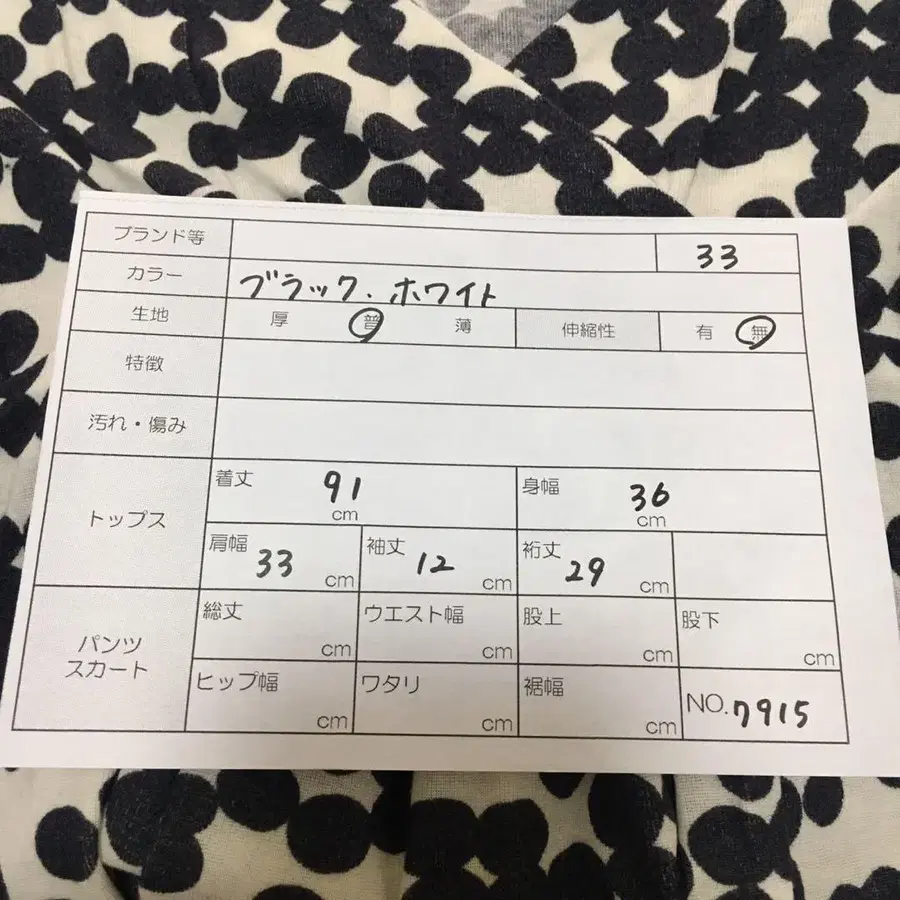 ブランド等 33
カラー ブラック.ホワイト
生地 厚 普 薄 伸縮性 有 無
特徴
汚れ・傷み
トップス 着丈 91 cm 身幅 36 cm
肩幅 33 cm 袖丈 12 cm 裄丈 29 cm
パンツ スカート 総丈 cm ウエスト幅 cm 股上 cm 股下 cm
ヒップ幅 cm ワタリ cm 裾幅 cm NO.7915